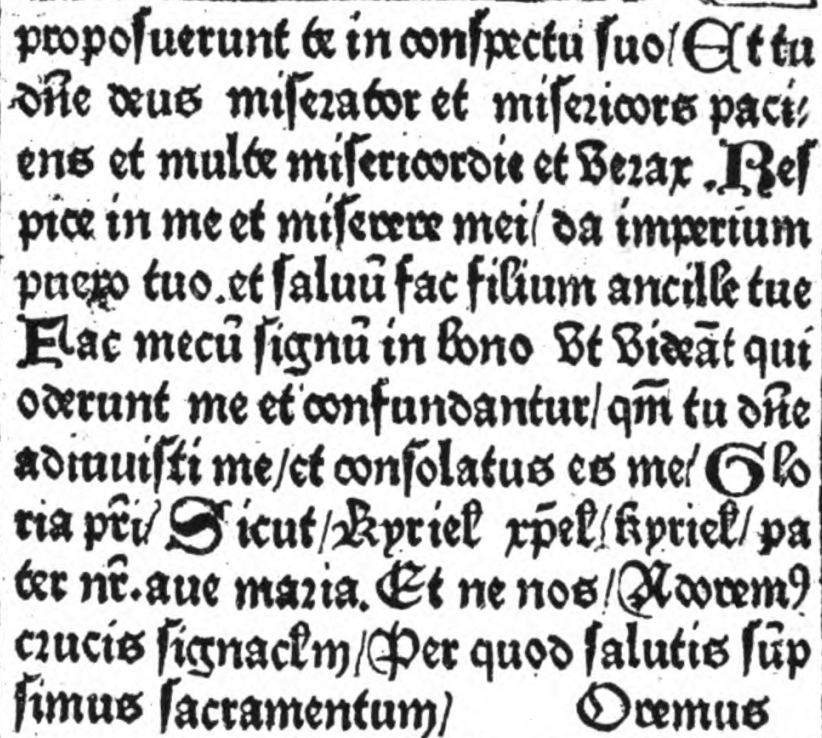 propoſuerunt te in conſpectu ſuo/ Et tu
dñe deus miſerator et miſericors paci⸗
ens et multe miſericordie et verax . Reſ
pice in me et miſerere mei/ da imperium
puero tuo. et ſaluū fac filium ancille tue
Fac mecū ſignū in bono vt videāt qui
oderunt me et confundantur/ qm̄ tu dñe
adiuuiſti me/ et conſolatus es me/ Glo
ria pr̄i/ Sicut/ kyriel xp̄el/ kyriel/ pa
ter nr̄. aue maria. Et ne nos/ Adoremꝰ
crucis ſignaclm/ Per quod ſalutis ſūp
ſimus ſacramentum/ Oremus